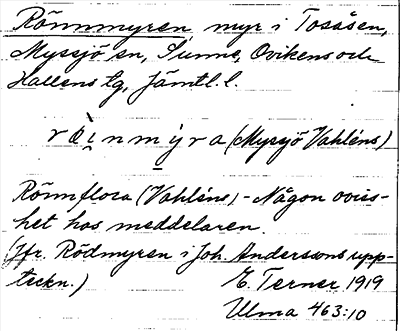 Rönnmyren, myr i Tosåsen,
Myssjö sn, Sunne, Ovikens och
Hallens tg, Jämtl. l.
rö̀i̯nmyra (Myssjö Vahléns)
Rönnflora (Vahléns) - Någon oviss-
het hos meddelaren.
(Jfr. Rödmyren i Joh. Anderssons upp-
teckn.) E. Terner 1919
Ulma 463:10